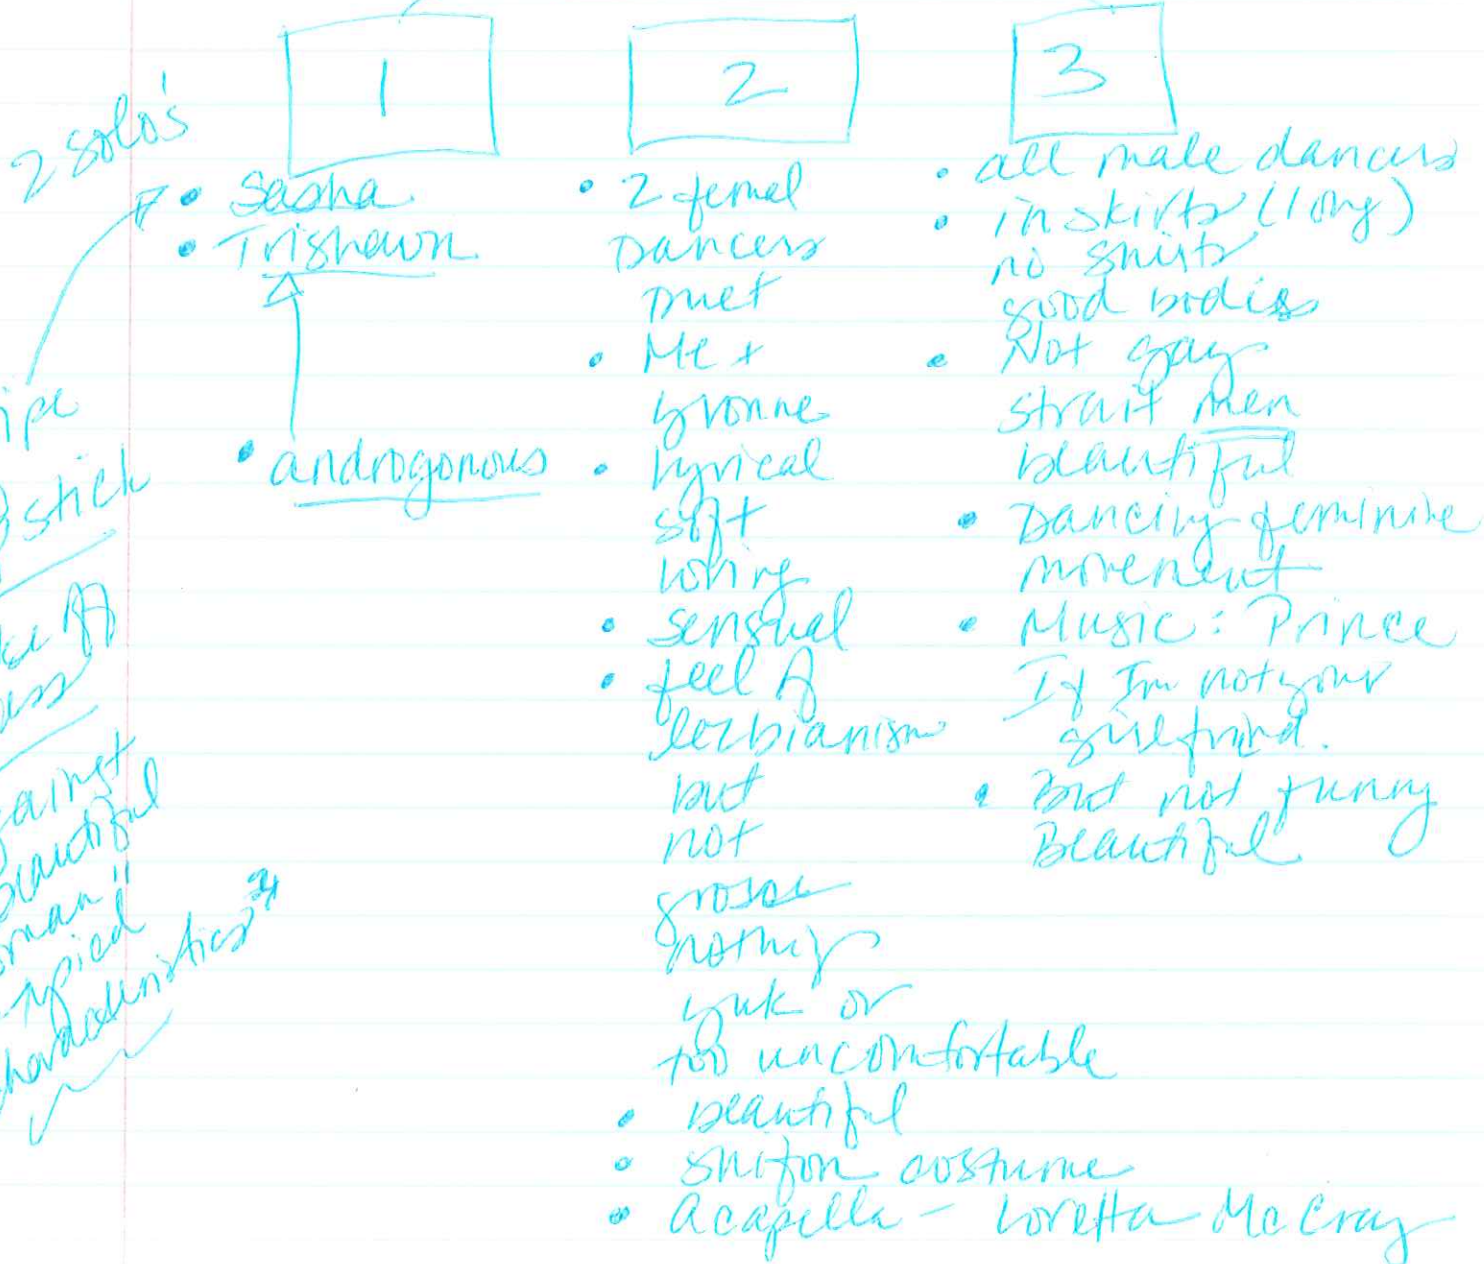 2 solo's
1
• Sasha
• Trishawn
• androgonous
stick
characteristics"
2
• 2 femal
Dancers
Duet
• Me +
Yvonne
• Lyrical
soft
loving
• sensual
• feel of
lezbianism
but
not
grosse
nothing
yuk or
too uncomfortable
• beautiful
• shifon costume
• Acapella - Loretta McCray
3
• all male dancers
• in skirts (long)
no shirts
good bodies
• Not gay
strait men
beautiful
• Dancing feminine
movement
• Music: Prince
If Im not your
girlfrind.
• But not funny
Beautiful